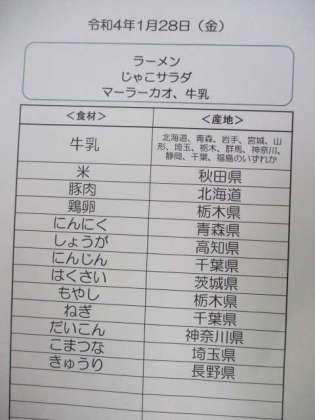 令和4年1月28日（金）
ラーメン
じゃこサラダ
マーラーカオ、牛乳
＜食材＞ ＜産地＞
牛乳 北海道、青森、岩手、宮城、山
形、埼玉、栃木、群馬、神奈川、
静岡、千葉、福島のいずれか
米 秋田県
豚肉 北海道
鶏卵 栃木県
にんにく 青森県
しょうが 高知県
にんじん 千葉県
はくさい 茨城県
もやし 栃木県
ねぎ 千葉県
だいこん 神奈川県
こまつな 埼玉県
きゅうり 長野県